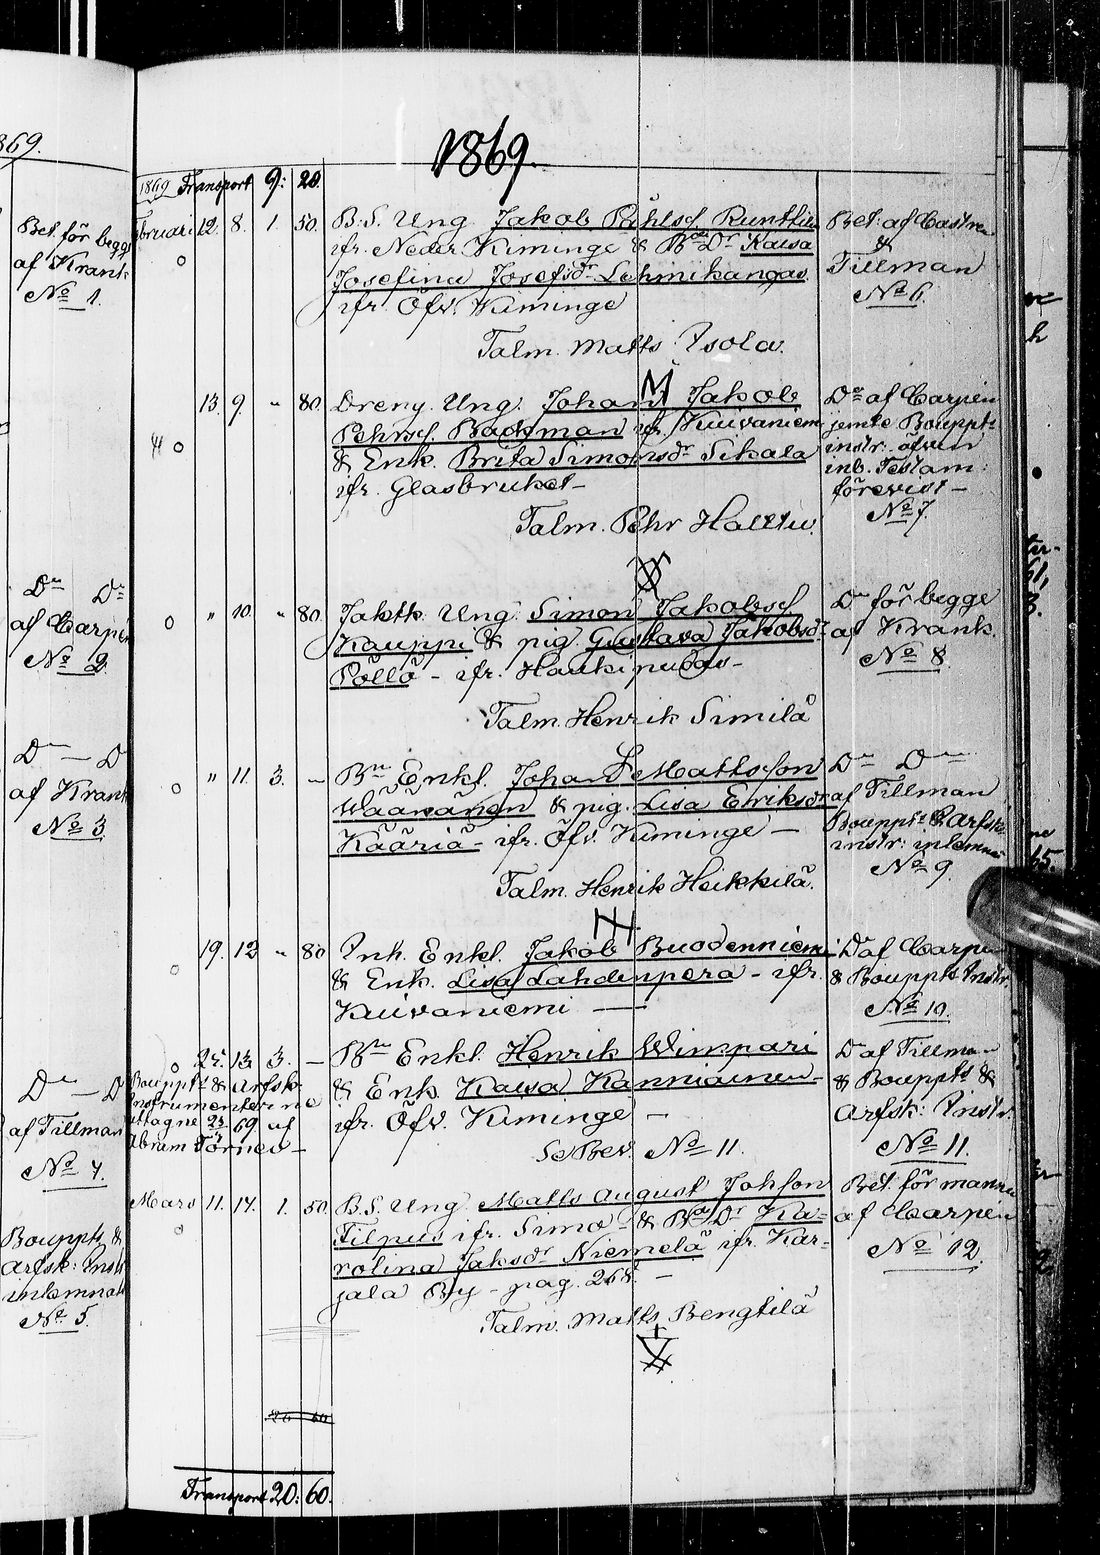 869.
Bet. för begge
af Krank
No 1.
Dn Dn
af Carpén
No 2
Dn — D
af Krank
No 3
Dn — D
af Tillman
No 4.
Bouppt. &
Arfsk: Inst
inlemnat
No 5.
1869.
1869 Transport 9: 20.
Februari 12. 8. 1. 50. B.S. Ung. Jakob Påhlss. Runttila
ifr. Neder Kiminge & Bde Dr Kaisa
Josefina Josefsdr Lehmikangas
ifr. Öfv. Kiminge
Talm. Matts Isola.
Bet: af Castrén
&
Tillman
No 6.
13. 9. " 80. Dreng. Ung. Johan Jakob
Pehrss. Backman ifr. Kuivaniemi
& Enk. Brita Simonsdr Sikala
ifr. Glasbruket —
Talm. Pehr Halttu.
Do af Carpén
jemte Bouppts
instr. äfven
inb. Testam:
förevist —
No 7.
" 10. " 80. Jaktk. Ung. Simon Jakobss.
Kauppi & pig. Gustava Jakobsdr
Pöllö — ifr. Haukipudas —
Talm. Henrik Similä
Dn för begge
af Krank.
No 8.
" 11. 3. — Bn Enkl. Johan Mattsson
Wäänänen & pig. Lisa Eriksdr
Kääriä — ifr. Öfv. Kiminge —
Talm. Henrik Heikkilä.
Dn Dn
af Tillman
Bouppts & Arfsk:
instr: inlemnat
No 9.
19. 12 " 80 Inh. Enkl. Jakob Buodenniemi
& Enk. Lisa Lahdenperä — ifr.
Kuivaniemi —
Do af Carpén
& Bouppts Instr.
No 10.
25. 13 3. — Bn Enkl. Henrik Wimpari
& Enk. Kaisa Kanniainen
ifr. Öfv. Kiminge —
Se Bev. No 11.
Bouppts & Arfsk:
Instrumenterne
uttagne 23 69 af
Abram Törnev —
Do af Tillman
& Bouppts &
Arfsk: Instr.
No 11.
Mars 11. 14. 1. 50 B.S. Ung Matts August Johsson
Tilpus ifr. Simo — & Bde Dr Ka-
rolina Jaksdr Niemelä ifr. Kar-
jala By — pag. 268. —
Talm. Matts Bengtilä
Bet. för mannen
af Carpén
No 12.
20 60
Transport 20: 60.